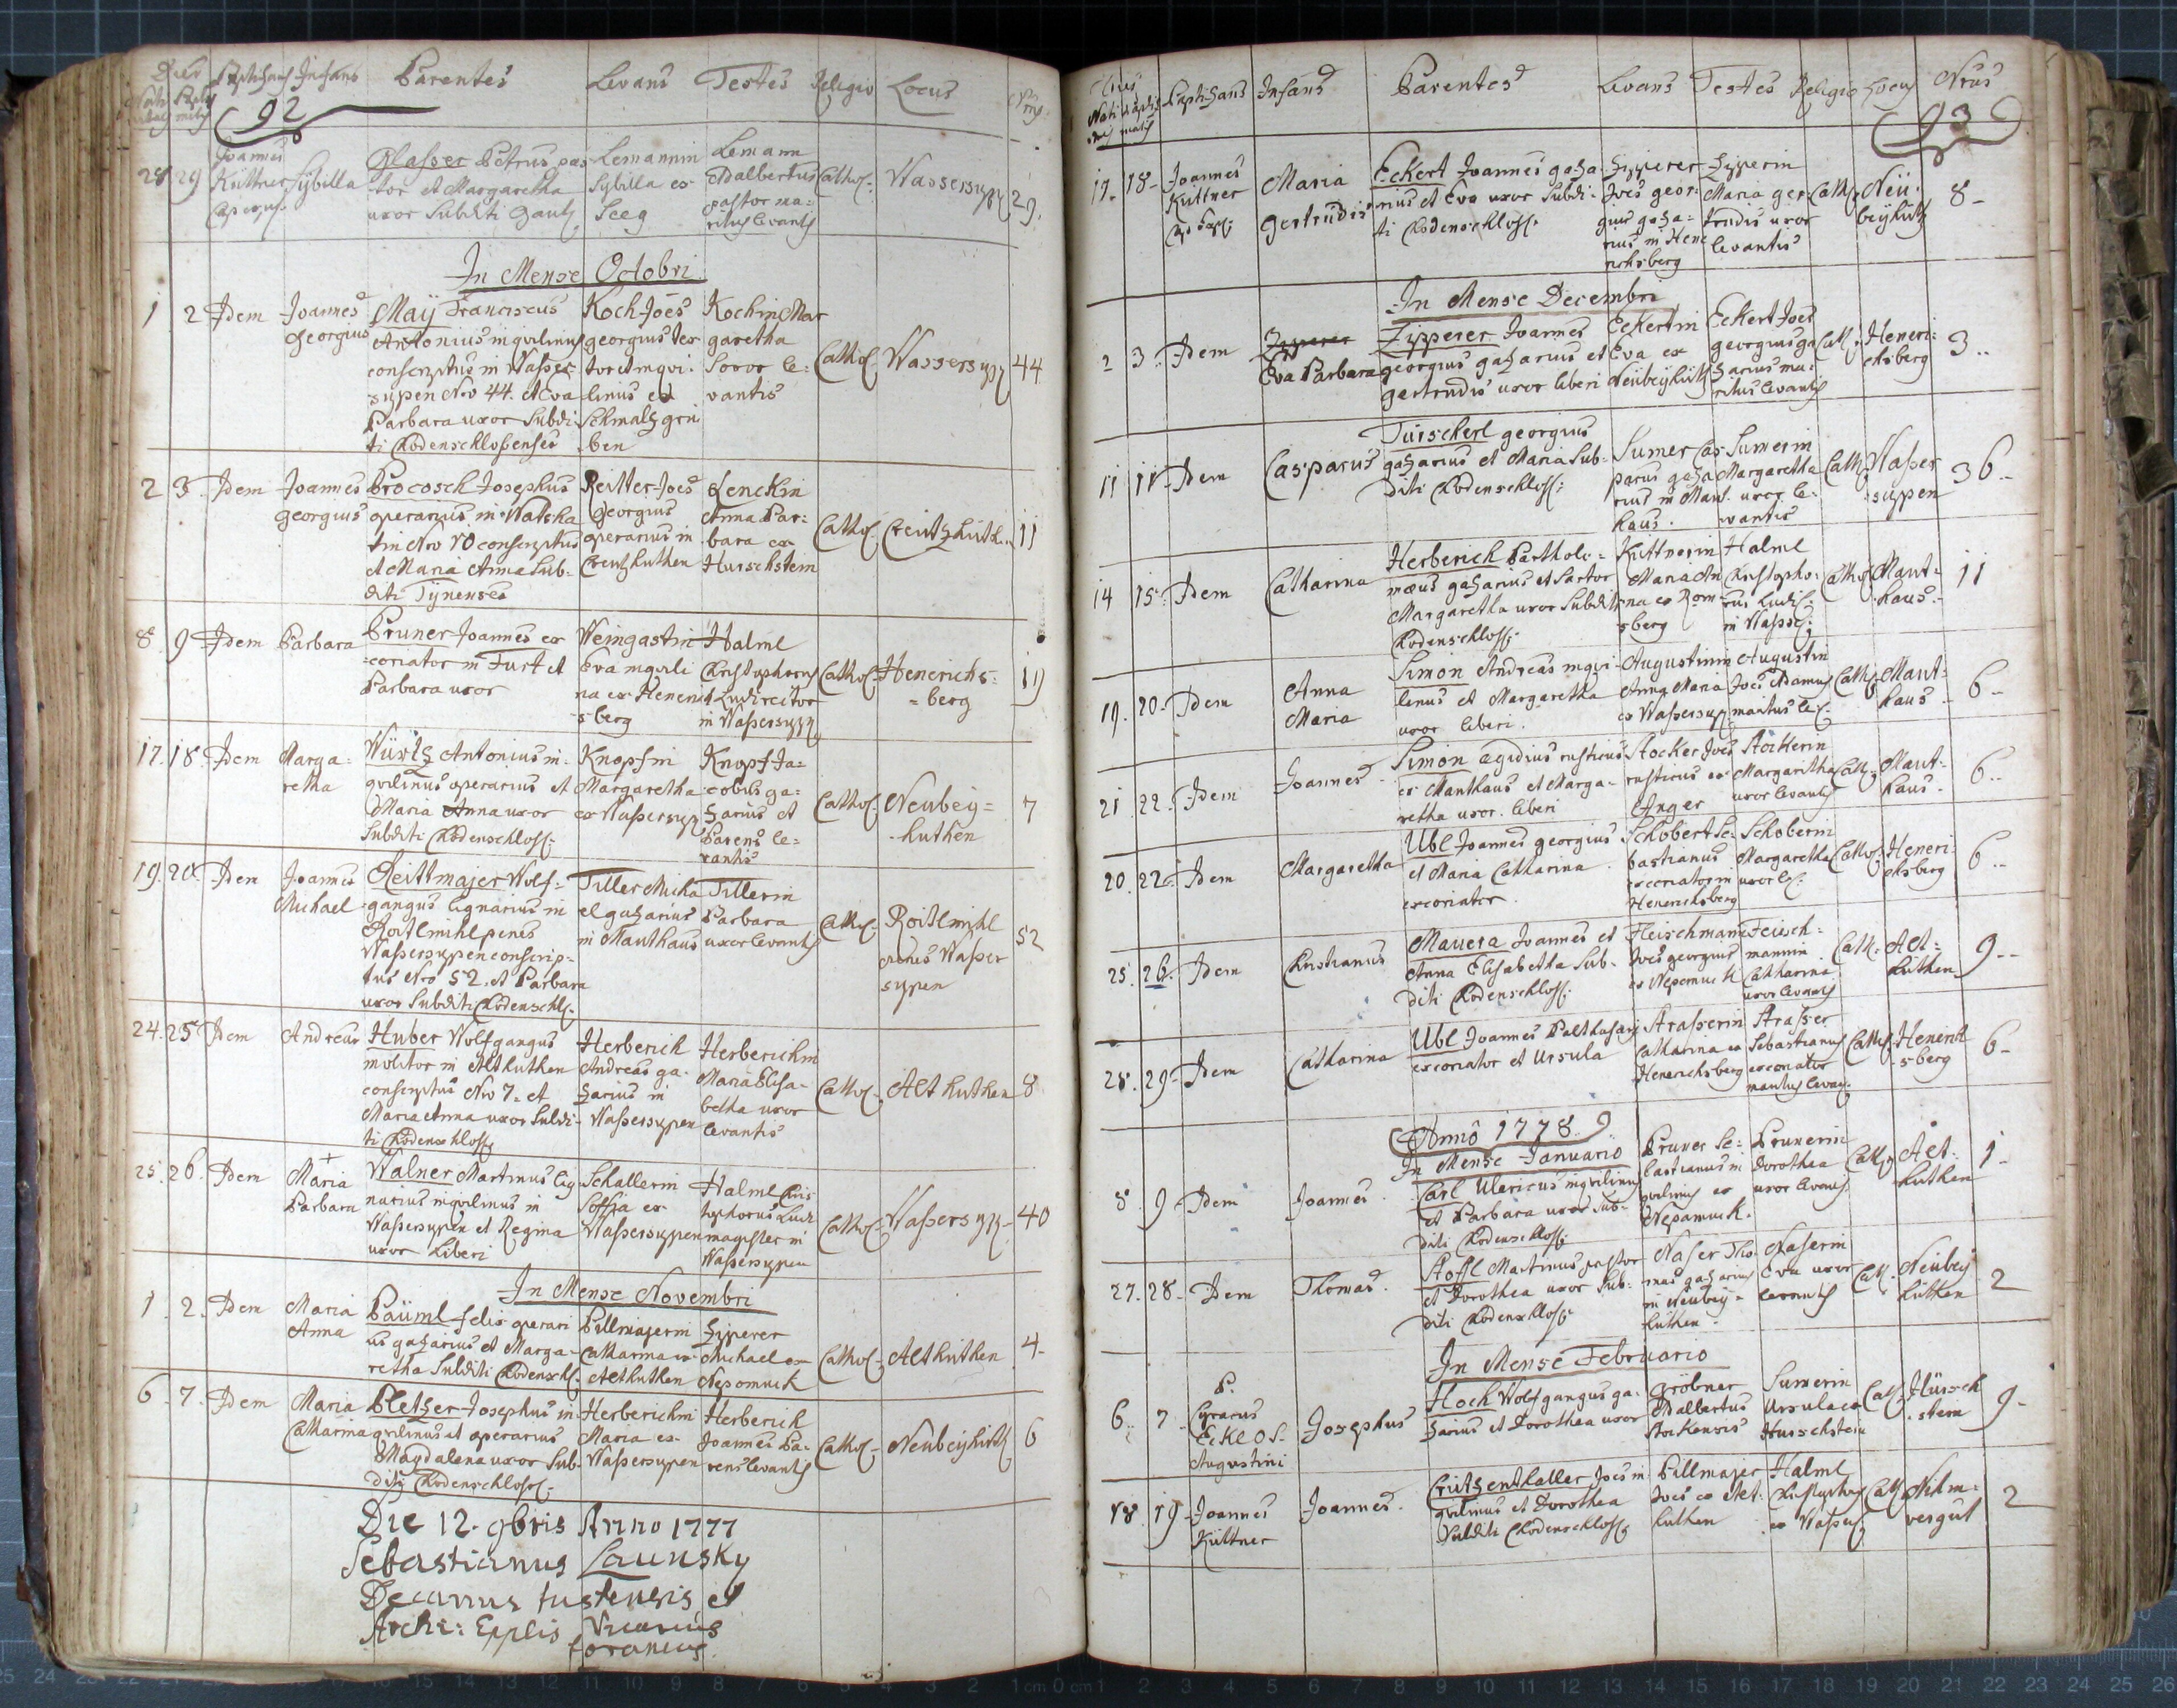 Dies
Baptisans Infans Parentes Levans Testes Religio Locus
92
28 29 Joannes Küttner Sybilla
Glasser Petrus pas-
tor et Margaretha
uxor Subditi
Lemannin
Sybilla ex
Seeg
Lemann
Adalbertus
pastor ma-
ritus levantis
Cathol: Wassersupp 29.
In Mense Octobri
1 2 Idem Joannes
Georgius
Maÿ Franciscus
Antonius inqvilinus
conscriptus in Wasser-
supen Nro 44. et Eva
Barbara uxor Subdi-
ti Rodenschlossenses
Koch Joes
georgius tex
tor et inqvi-
linus ex
Schmaltz gru
ben
Kochin Mar
garetha
Soror le-
vantis
Cathol: Wassersupp 44
2 3 Idem Joannes
georgius
Brocosch Josephus
operarius in Watska
tin Nro 70 conscriptus
et Maria Anna Sub-
diti Tÿnenses
Reitter Joes
Georgius
operarius in
Creutzhutten
Lenckin
Anna Bar-
bara ex
Hurschstein
Cathol: Creutzhütt 11
8 9 Idem Barbara
Bruner Joannes ex
-coriator in Furt et
Barbara uxor
Weingastin
Eva inqvili
na ex Henerich
sberg
Halml
Christophorus
Ludirector
in Wassersupp
Cathol: Henerichs-
=berg 19
17. 18. Idem Marga-
retha
Würtz Antonius in-
qvilinus operarius et
Maria Anna uxor
Subditi Rodenschloss:
Knopfin
Margaretha
ex Wassersupp
Knopf Ja-
cobus ga-
zarius et
Parens le-
vantis
Cathol: Neubey=
-hutten 7
19. 20. Idem Joannes
Michael
Reittmajer Wolf=
gangus lignarius in
Roitlmihl penes
Wassersuppen conscrip-
tus Nro 52. et Barbara
uxor Subditi Rodenschl:
Tiller Micha
el gazarius
in Manthaus
Tillerin
Barbara
uxor levantis
Cathol: Roitlmihl
penes Wasser
supen 52
24. 25 Idem Andreas
Huber Wolfgangus
molitor in Althutten
conscriptus Nro 7. et
Maria Anna uxor Subdi-
ti Rodenschloss
Herberich
Andreas ga-
zarius in
Wassersuppen
Herberichin
Maria Elisa-
betha uxor
levantis
Cathol: Althutten 8
25. 26. Idem Maria
Barbara
Walner Martinus lig
narius inqvilinus in
Wassersupen et Regina
uxor Liberi
Schallerin
Soffia ex
Wassersuppen
Halml Chris
tophorus Ludi
magister in
Wassersupen
Cathol: Wassersupp- 40
In Mense Novembri
1. 2. Idem Maria
Anna
Bäuml felix operari
us gazarius et Marga-
retha Subditi Rodenschl:
Billmajerin
Catharina ex
Althutten
Zipperer
Michael ex
Nepomuck
Cathol: Althutten 4-
6. 7. Idem Maria
Catharina
Bletzer Josephus in-
qvilinus et operarius
Magdalena uxor Sub-
diti Rodenschloss:
Herberichin
Maria ex
Wassersupen
Herberich
Joannes Pa-
rens levantis
Cathol: Neubeyhütt 6
Die 12. 9bris Anno 1777
Sebastianus Launsky
Decanus tustensis et
Archi: Epplis Vicarius
foraneus.
Baptisans Infans Parentes Levans Testes Religio Locus Nrus
93
17. 18- Joannes
Küttner
Maria
Gertrudis
Eckert Joannes gaza-
rius et Eva uxor Subdi-
ti Rodenschloss:
Zipperer
Joes geor-
gius gaza-
rius in Hene
richsberg
Zipperin
Maria ger-
trudis uxor
levantis
Cath: Neü-
beÿhütt 8-
In Mense Decembri
2 3. Idem Eva Barbara
Zipperer Joannes
georgius gazarius et
gertrudis uxor liberi
Eckertin
Eva ex
Neübeyhütt
Eckert Joes
georgius ga
zarius ma-
ritus levantis
Cath: Heneri-
chsberg 3..
11 11- Idem Casparus
Tuischerl georgius
gazarius et Maria Sub-
diti Rodenschloss:
Sumer Cas
parus gaza
rius in Mant-
haus.
Sumerin
Margaretha
uxor le-
vantis
Cath: Wasser
suppen 36-
14 15. Idem Catharina
Herberich Bartholo-
mæus gazarius et Sartor
Margaretha uxor Subditi
Rodenschloss:
Küttnerin
Maria An
na ex Rom
sberg
Halml
Christopho-
rus Ludi:
in Wasser:
Cathol: Mant-
haus.- 11
19. 20- Idem Anna
Maria
Simon Andreas inqvi-
linus et Margaretha
uxor liberi.
Augustinin
Anna Maria
ex Wassersup:
Augustin
Joes Adamus
maritus le:
Cath: Mant-
haus 6-
21 22. Idem Joannes
Simon Ægidius rusticus
ex Manthaus et Marga-
retha uxor. liberi
Stocker Joes
rusticus ex
Anger
Stockerin
Margaritha
uxor levantis
Cath: Mant-
haus. 6..
20. 22. Idem Margaretha
Ubl Joannes georgius
et Maria Catharina
excoriator.
Schobert Se-
bastianus
excoriator in
Henerichsberg
Schoberin
Margaretha
uxor le:
Cathol: Heneri-
chsberg 6..
25. 26. Idem Christianus
Mauera Joannes et
Anna Elisabetha Sub-
diti Rodenschloss:
Fleischman
Joes georgius
ex Nepomuck
Fleisch-
mannin
Catharina
uxor levantis
Cath: Alt-
hutten 9--
28. 29- Idem Catharina
Ubl Joannes Balthasar
excoriator et Ursula
Strasserin
Catharina ex
Henerichsberg
Strasser
Sebastianus
excoriator
maritus levan:
Cathol: Henerich
sberg 6-
Anno 1778
In Mense Januario
8. 9- Idem Joannes.
Carl Ulericus inqvilinus
et Barbara uxor Sub-
diti Rodenschloss:
Pruner Se-
bastianus in
qvilinus ex
Nepamuck.
Prunerin
Dorothea
uxor levan:
Cathol: Alt-
hutten 1-
27. 28- Idem Thomas.
Stoffl Martinus pastor
et Dorothea uxor Sub-
diti Rodenschloss:
Naser Tho-
mas gazarius
in Neubey-
hütten.
Naserin
Eva uxor
levantis
Cath: Neubey
hütten 2
In Mense Februario
6. 7- P.
Cyracus
Ecklof.
Augustini
Josephus
Hoch Wolfgangus ga-
zarius et Dorothea uxor
Gröbner
Adalbertus
Stockensis
Sumerin
Ursula ex
Hurschstein
Cath: Hürsch
stein 9-
18. 19- Joannes
Küttner
Joannes.
Crutzenthaller Joes in
qvilinus et Dorothea
Subditi Rodenschloss:
Billmajer
Joes ex Alt-
hutten
Halml
Christopho:
ex Wasser
Cath: Nihm-
vergut 2